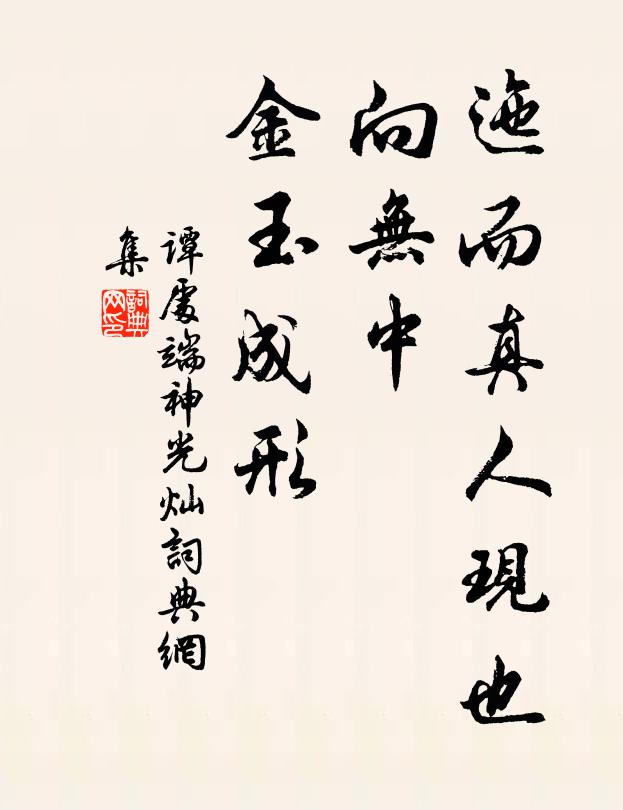 迤而真人現也
向無中
金玉成形
谭處端神光灿詞典網
集
詞典
网印